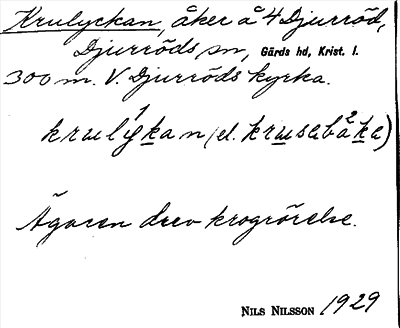 Krulyckan, åker å 4 Djurröd,
Djurröds sn, Gärds hd, Krist. l.
300 m. V. Djurröds kyrka.
krulykan (el. krusabåka)
Ägaren drev krogrörelse.
NILS NILSSON 1929